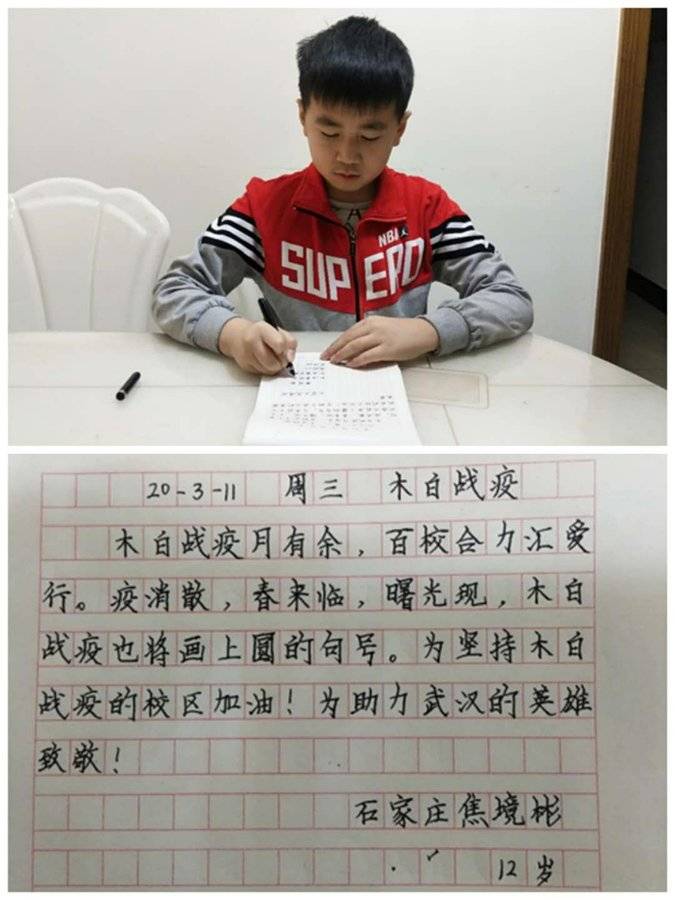 NBA
SUPERO
20-3-11 周三 木白战疫
木白战疫月有余，百校合力汇爱
行。疫消散，春来临，曙光现，木白
战疫也将画上圆的句号。为坚持木白
战疫的校区加油！为助力武汉的英雄
致敬！
石家庄焦境彬
12岁